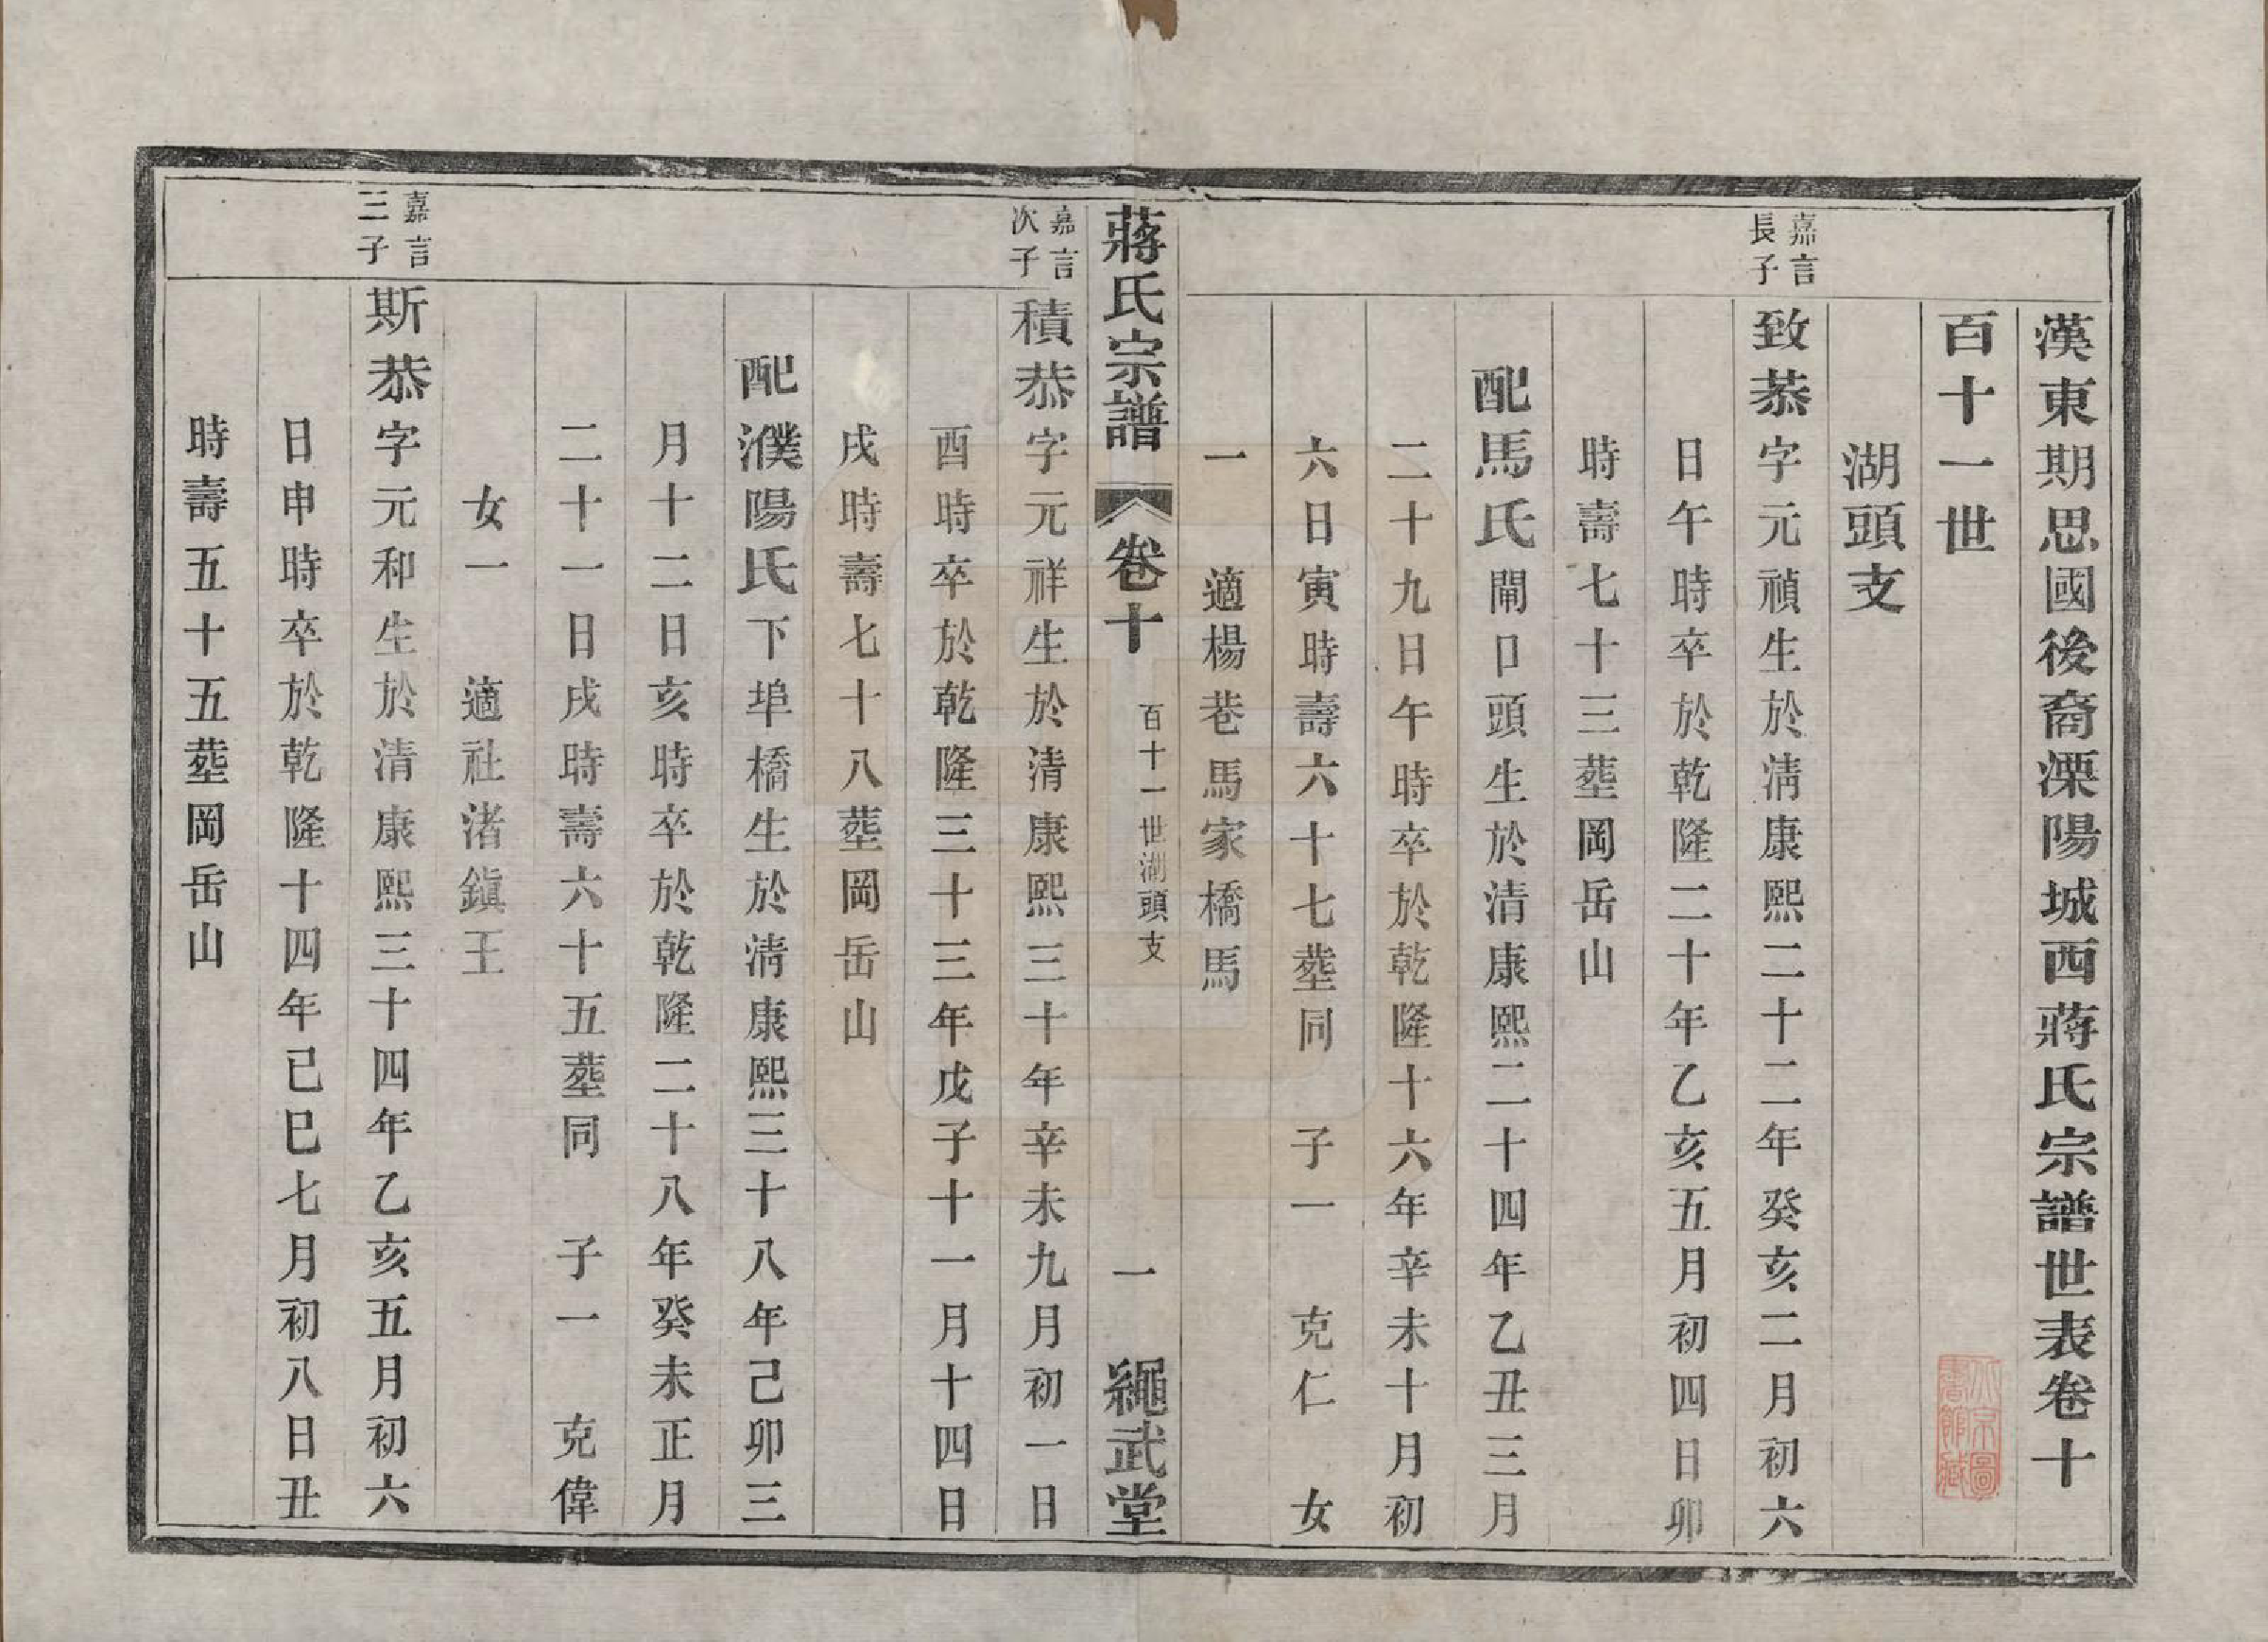 漢東期思國後裔溧陽城西蔣氏宗譜世表卷十
百十一世
湖頭支
嘉言
長子
致恭字元禎生於清康熙二十二年癸亥二月初六
日午時卒於乾隆二十年乙亥五月初四日卯
時壽七十三塟岡岳山
配馬氏閘口頭生於清康熙二十四年乙丑三月
二十九日午時卒於乾隆十六年辛未十月初
六日寅時壽六十七塟同 子一 克仁 女
一 適楊巷馬家橋馬
蔣氏宗譜 卷十 百十一世湖頭支 一 繩武堂
嘉言
次子
積恭字元祥生於清康熙三十年辛未九月初一日
酉時卒於乾隆三十三年戊子十一月十四日
戌時壽七十八塟岡岳山
配濮陽氏下埠橋生於清康熙三十八年己卯三
月十二日亥時卒於乾隆二十八年癸未正月
二十一日戌時壽六十五塟同 子一 克偉
女一 適社渚鎮王
嘉言
三子
斯恭字元和生於清康熙三十四年乙亥五月初六
日申時卒於乾隆十四年己巳七月初八日丑
時壽五十五塟岡岳山